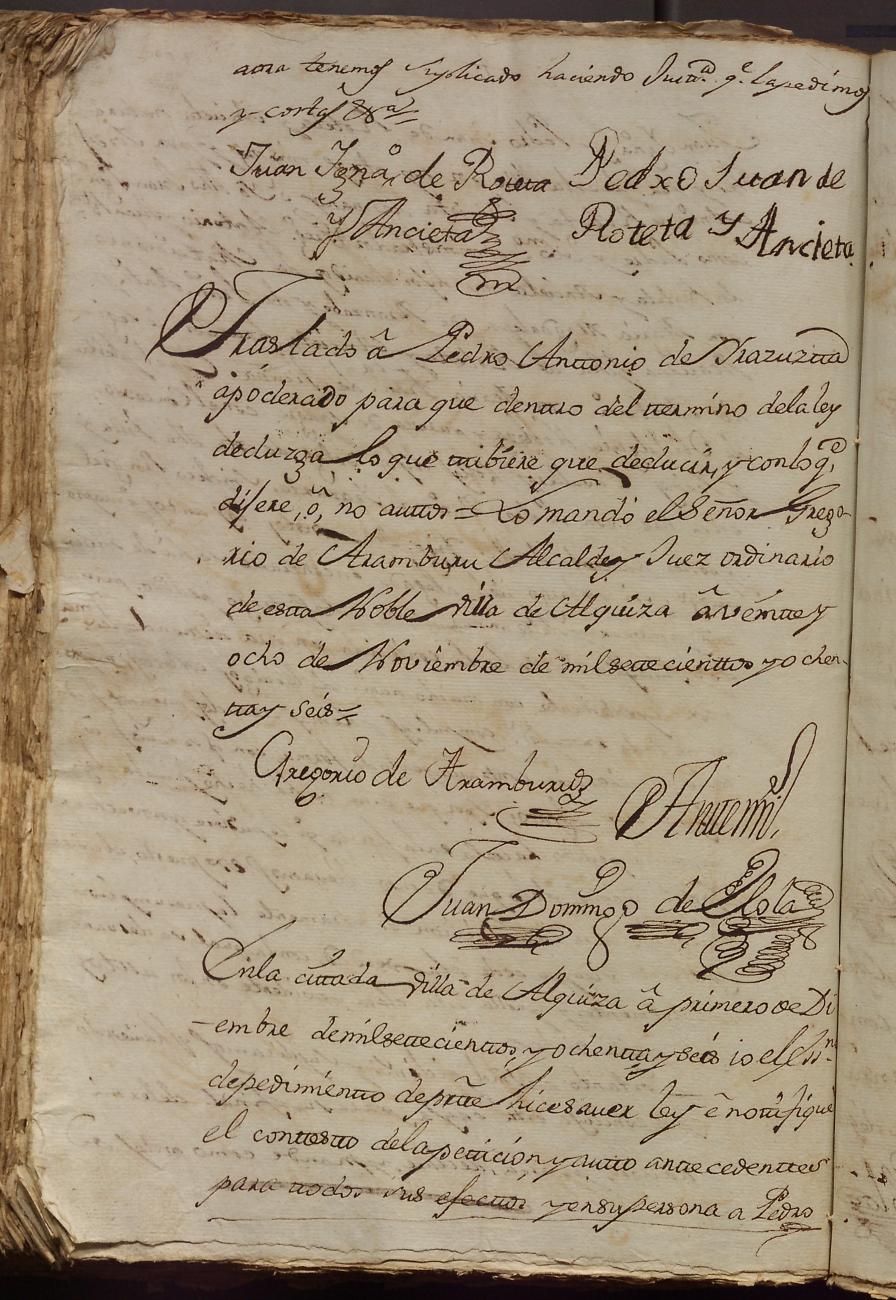 aora tenemos suplicado haciendo Justª. qᵉ. la pedimos
y costas &ª=
Juan Ignº. de Roteta Pedro Juan de
y Ancieta Roteta y Ancieta
Traslado â Pedro Anttonio de Yrazuztta
apoderado para que denttro del ttermino de la ley
deduzga lo que ttubiere que deducir, y con lo qᵉ.
dijere, ô, no auttos = Lo mandó el Señor Grego-
rio de Aramburu Alcalde y Juez ordinario
de estta Noble Villa de Alquiza â veintte y
ocho de Noviembre de mil settecienttos y ochen-
tta y seis=
Gregorio de Aramburu
Antemi,
Juan Domingo de Olola
En la cittada Villa de Alquiza â primero de Di
embre de mil settecienttos, y ochentta y seis io el Essnº.
de pedimientto de partte hice saver ley é nottifiqué
el conttestto de la petticion y autto anttecedenttes
para ttodos sus efecttos y en su persona a Pedro